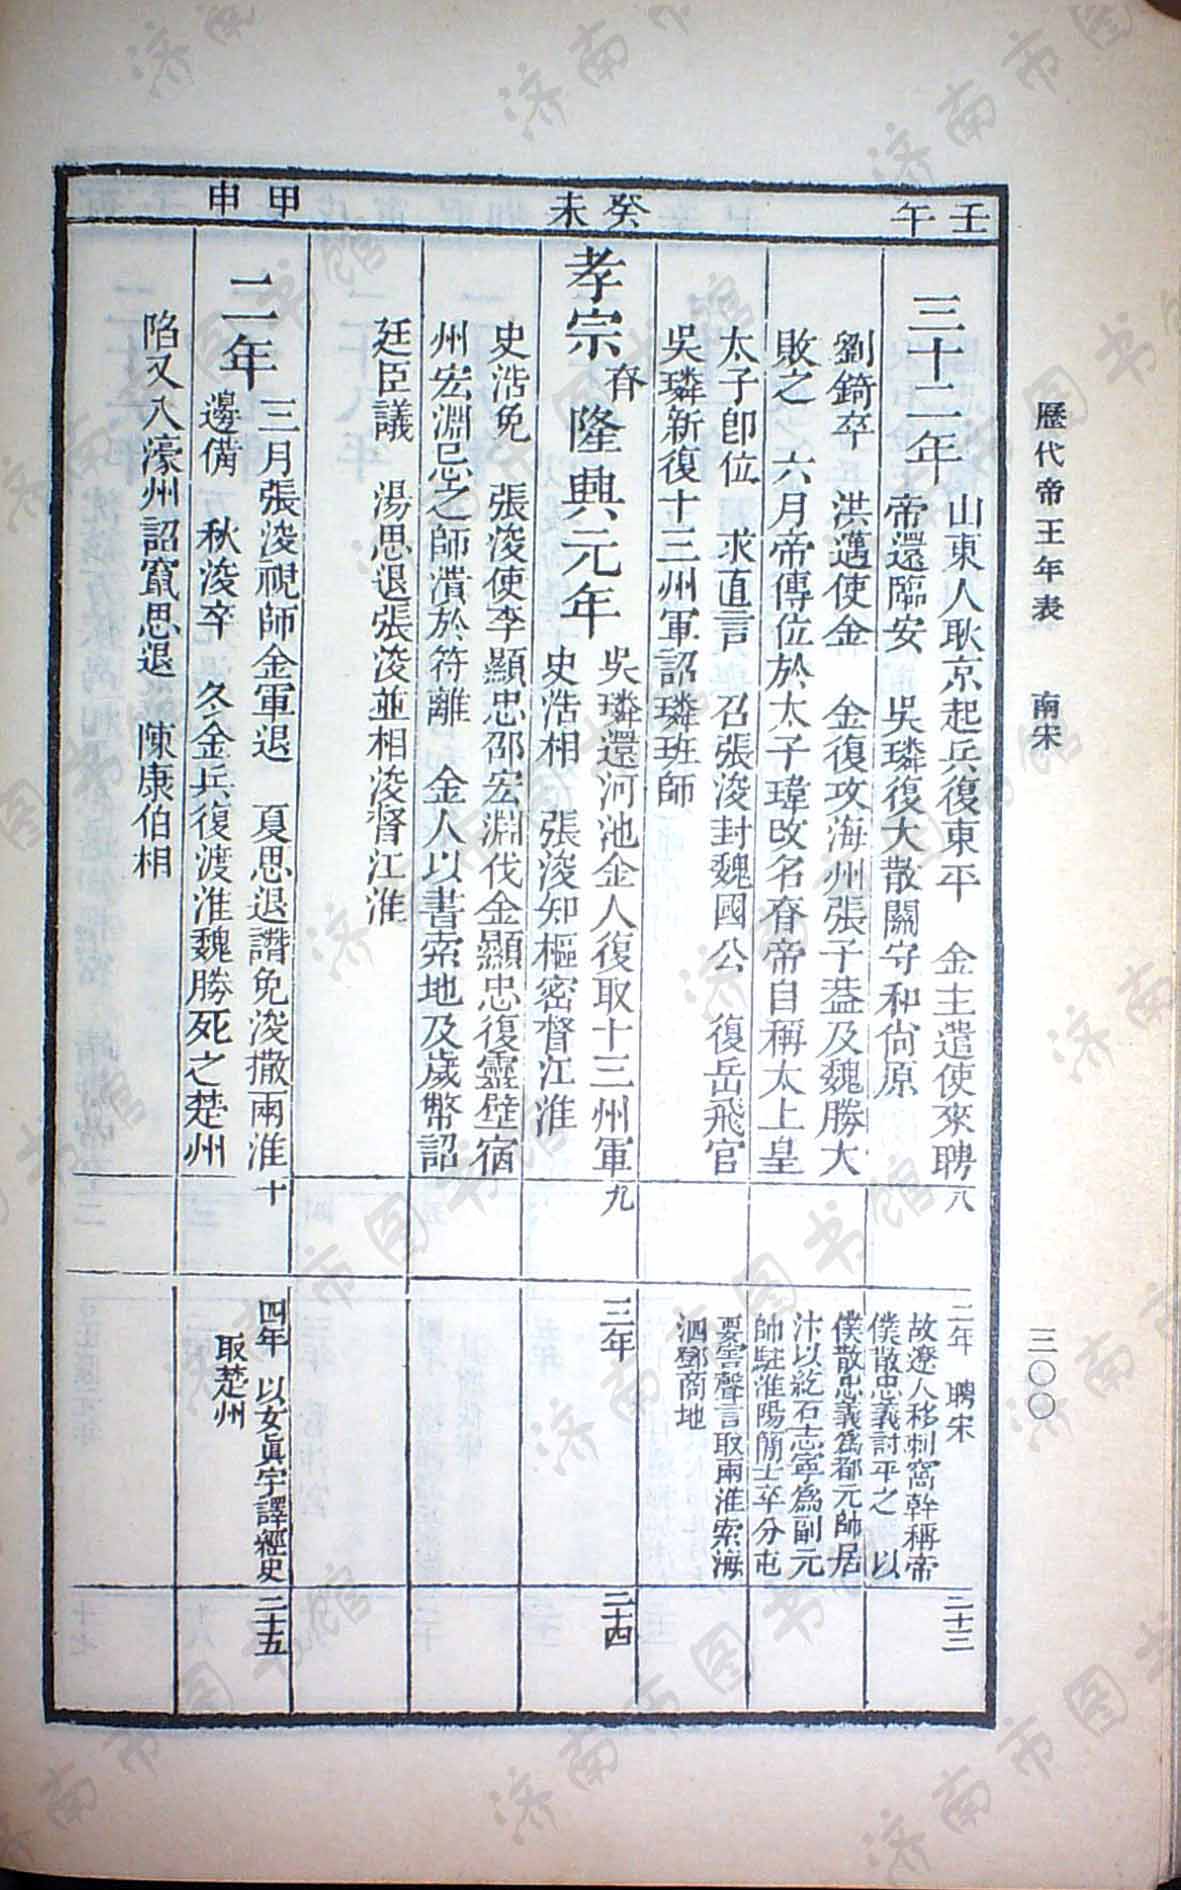 歷代帝王年表 南宋
三〇〇
壬午
三十二年
山東人耿京起兵復東平 金主遣使來聘
帝還臨安 吳璘復大散關守和尙原
劉錡卒 洪邁使金 金復攻海州張子蓋及魏勝大
敗之 六月帝傳位於太子瑋改名眘帝自稱太上皇
太子卽位 求直言 召張浚封魏國公 復岳飛官
吳璘新復十三州軍詔璘班師
八
二年 聘宋
故遼人移剌窩斡稱帝
僕散忠義討平之 以
僕散忠義爲都元帥居
汴以紇石志寧爲副元
帥駐淮陽簡士卒分屯
要害聲言取兩淮索海
泗鄧商地
二十三
癸未
孝宗眘隆興元年
吳璘還河池金人復取十三州軍
史浩相 張浚知樞密督江淮
史浩免 張浚使李顯忠邵宏淵伐金顯忠復靈壁宿
州宏淵忌之師潰於符離 金人以書索地及歲幣詔
廷臣議 湯思退張浚並相浚督江淮
九
三年
二十四
甲申
二年
三月張浚視師金軍退 夏思退譖免浚撒兩淮
邊備 秋浚卒 冬金兵復渡淮魏勝死之楚州
陷又入濠州詔竄思退 陳康伯相
十
四年 以女眞字譯經史
取楚州
二十五
济南市图书馆